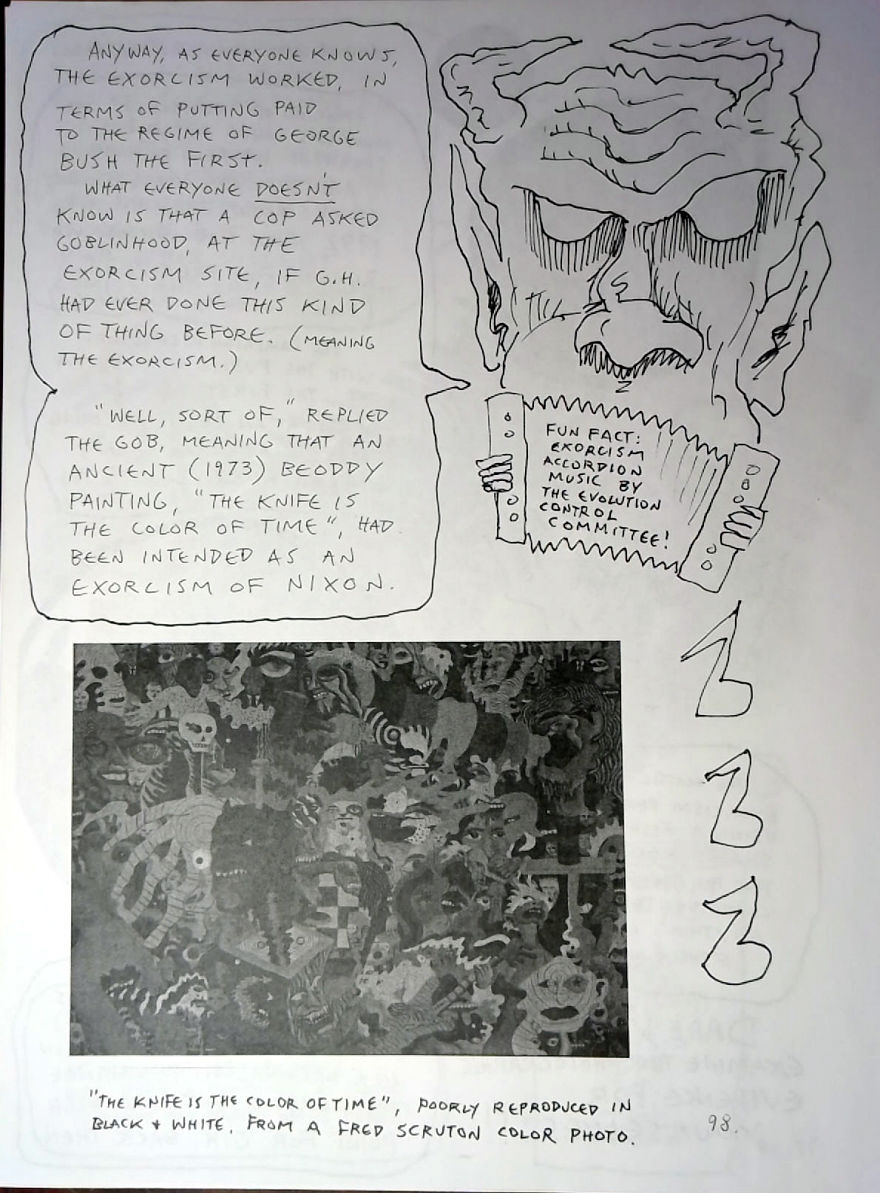 ANYWAY, AS EVERYONE KNOWS,
THE EXORCISM WORKED, IN
TERMS OF PUTTING PAID
TO THE REGIME OF GEORGE
BUSH THE FIRST.
WHAT EVERYONE DOESN'T
KNOW IS THAT A COP ASKED
GOBLINHOOD, AT THE
EXORCISM SITE, IF G.H.
HAD EVER DONE THIS KIND
OF THING BEFORE. (MEANING
THE EXORCISM.)
"WELL, SORT OF," REPLIED
THE GOB, MEANING THAT AN
ANCIENT (1973) BEODDY
PAINTING, "THE KNIFE IS
THE COLOR OF TIME", HAD
BEEN INTENDED AS AN
EXORCISM OF NIXON.
FUN FACT:
EXORCISM
ACCORDION
MUSIC BY
THE EVOLUTION
CONTROL
COMMITTEE!
"THE KNIFE IS THE COLOR OF TIME", POORLY REPRODUCED IN
BLACK + WHITE, FROM A FRED SCRUTON COLOR PHOTO.
98.